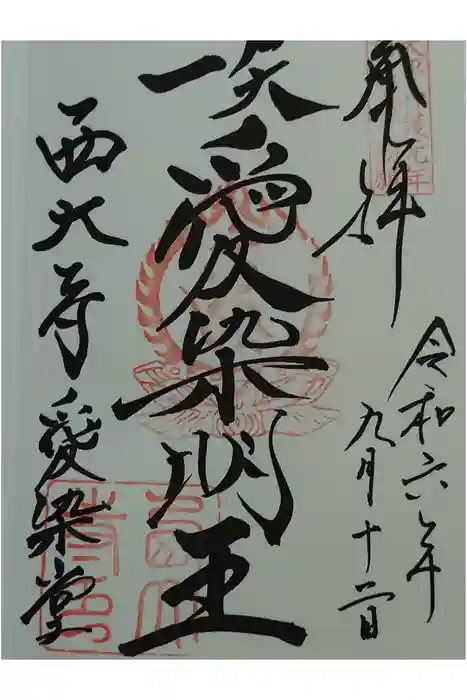 奉拝
令和六年
九月十
愛染明王
西大寺愛染堂